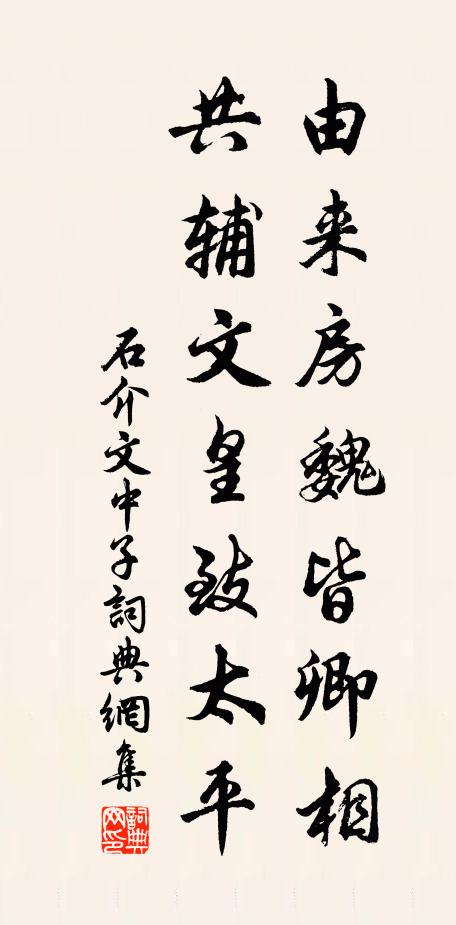 由来房魏皆卿相
共辅文皇致太平
石介文中子詞典網集
詞典网印